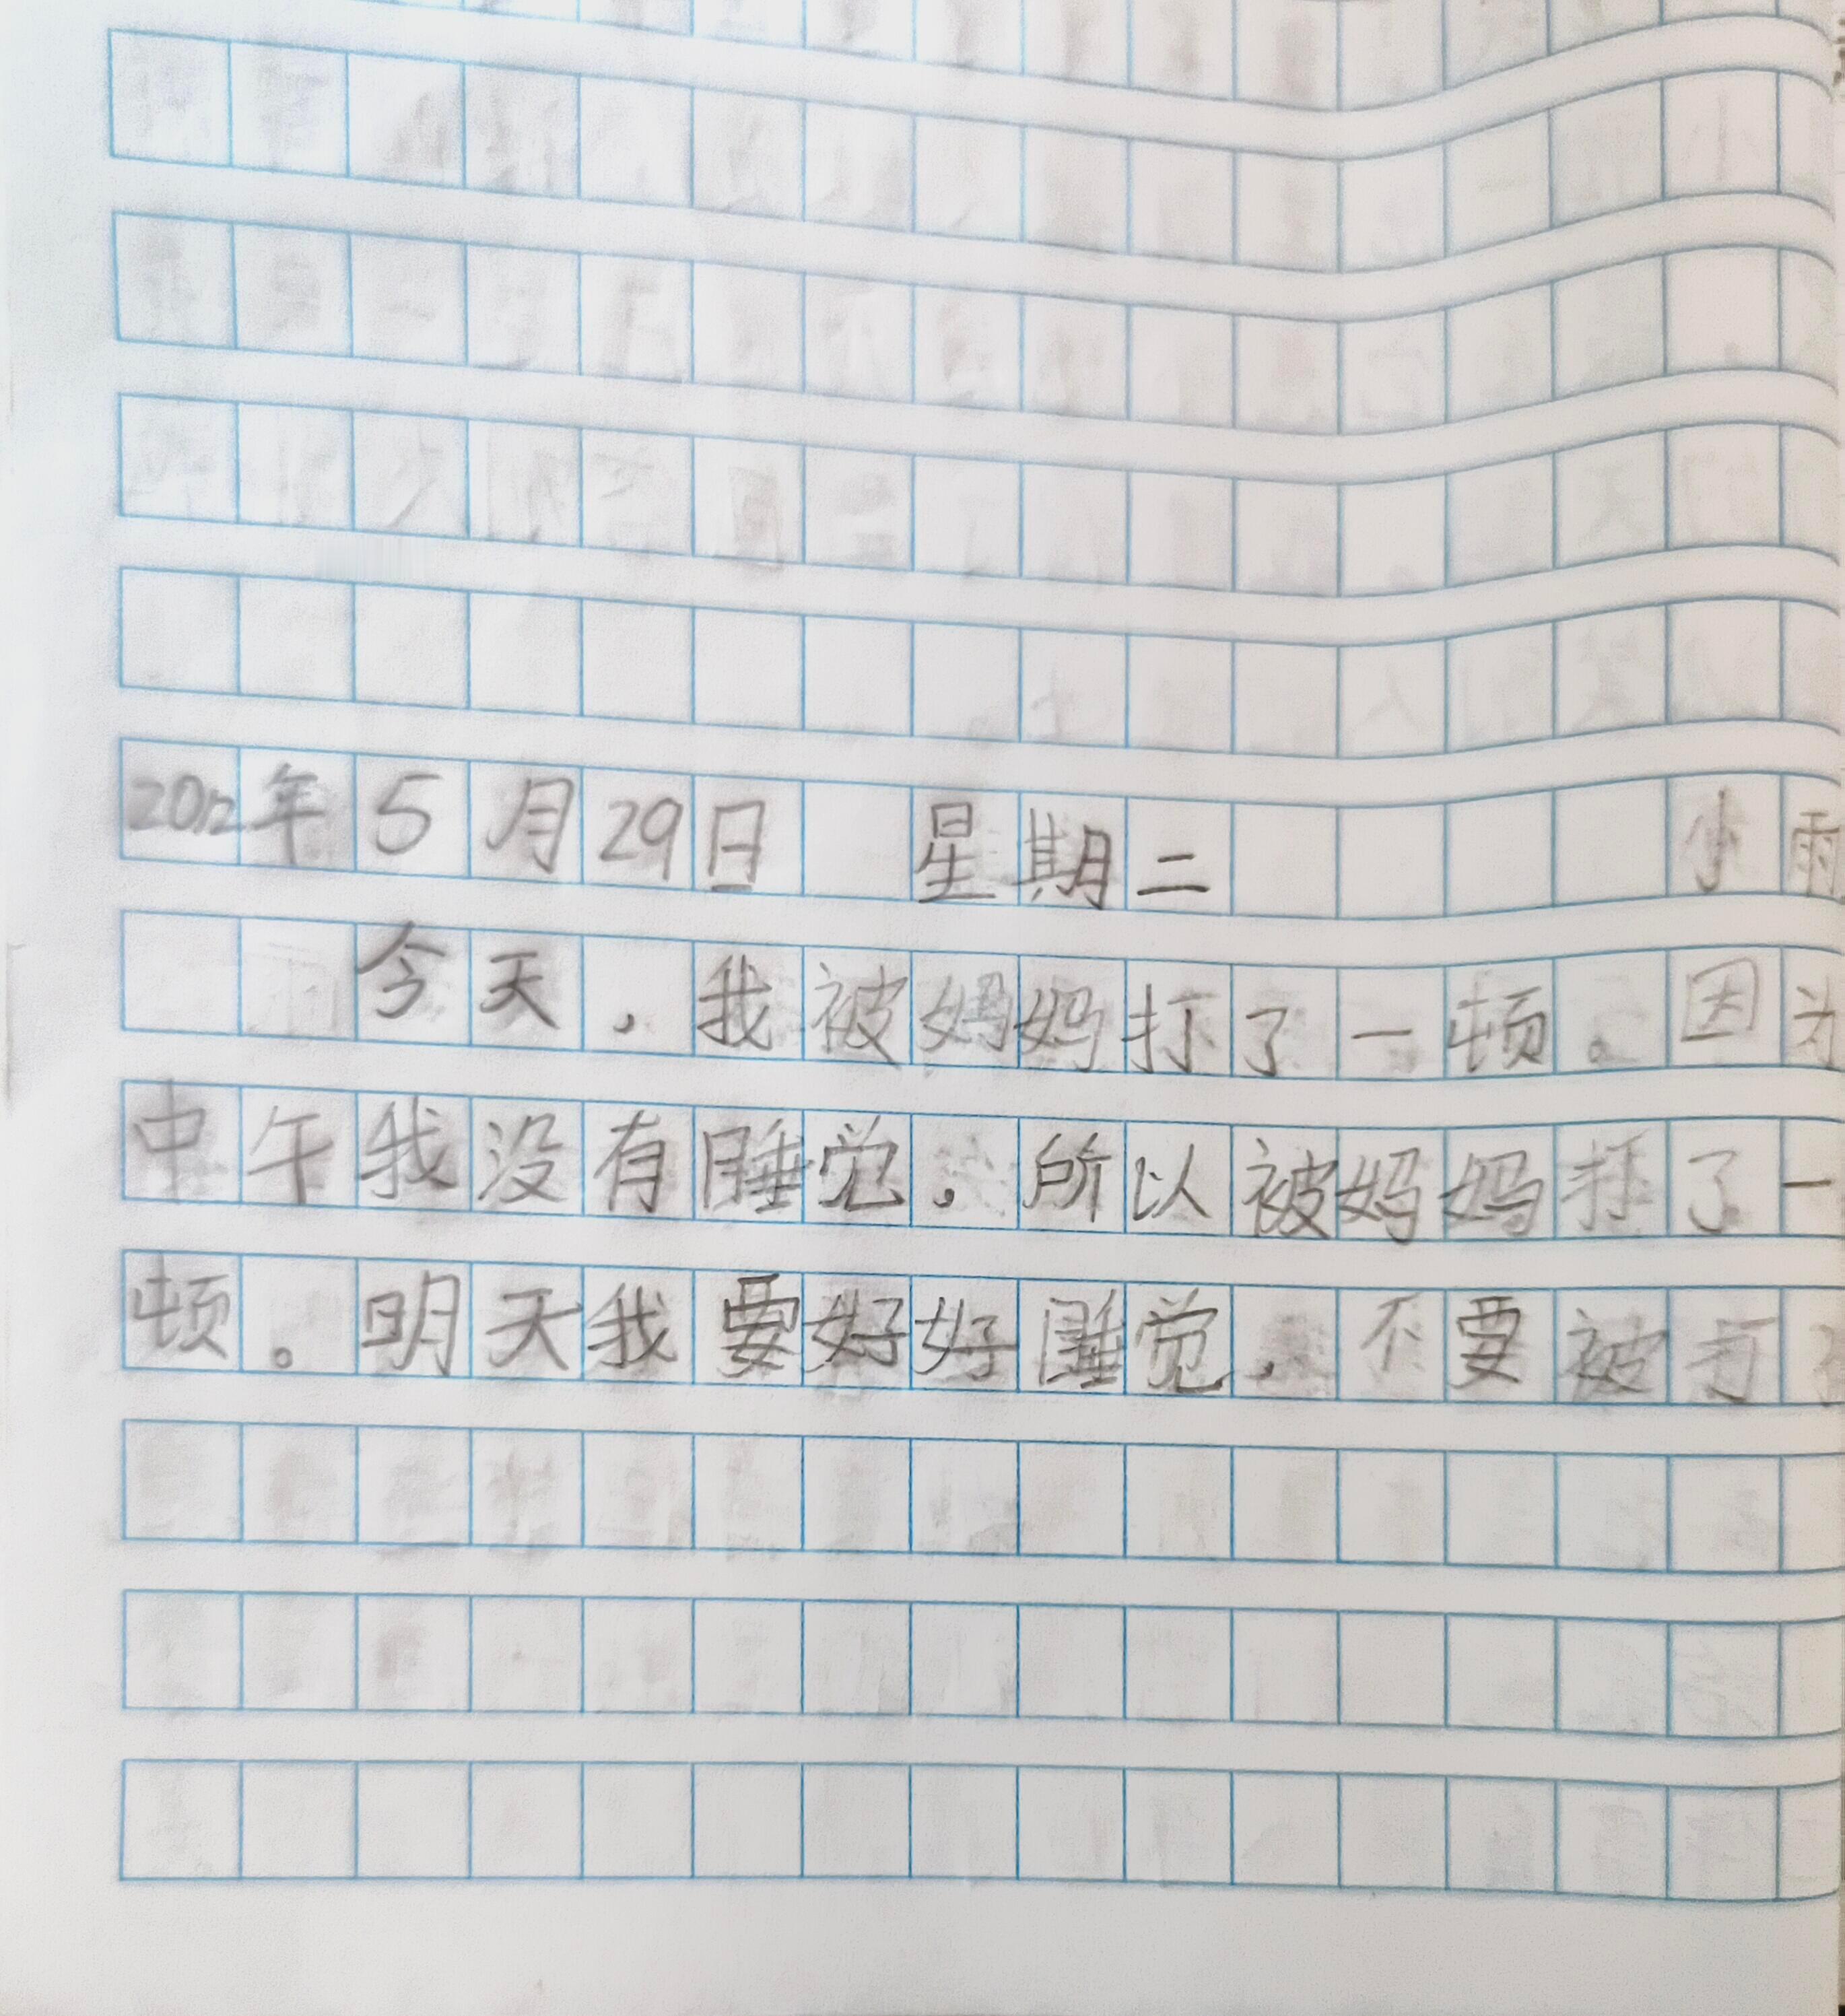 2012年5月29日 星期二 小雨
今天,我被妈妈打了一顿。因为
中午我没有睡觉,所以被妈妈打了一
顿。明天我要好好睡觉,不要被打